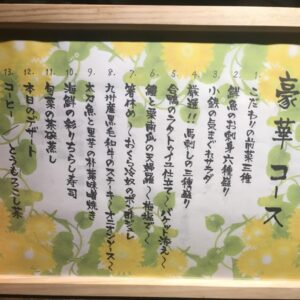 豪華コース
1. こだわりの前菜三種
2. 鮮魚のお刺身六種盛り
3. 小鉄の気まぐれサラダ
4. 厳選!!馬刺しの三種盛り
5. 合鴨のラタトゥイユ仕立て〜バゲット添え〜
6. 鱧と粟麩の天婦羅〜梅塩で〜
7. 箸休め〜おくら冷奴のポン酢ジュレ
8. 九州産黒毛和牛のステーキ〜オニオンソース〜
9. 太刀魚と里芋の朴葉味噌焼き
10. 海鮮の彩りちらし寿司
11. 旬菜の茶碗蒸し
12. 本日のデザート
13. コーヒー とうもろこし茶